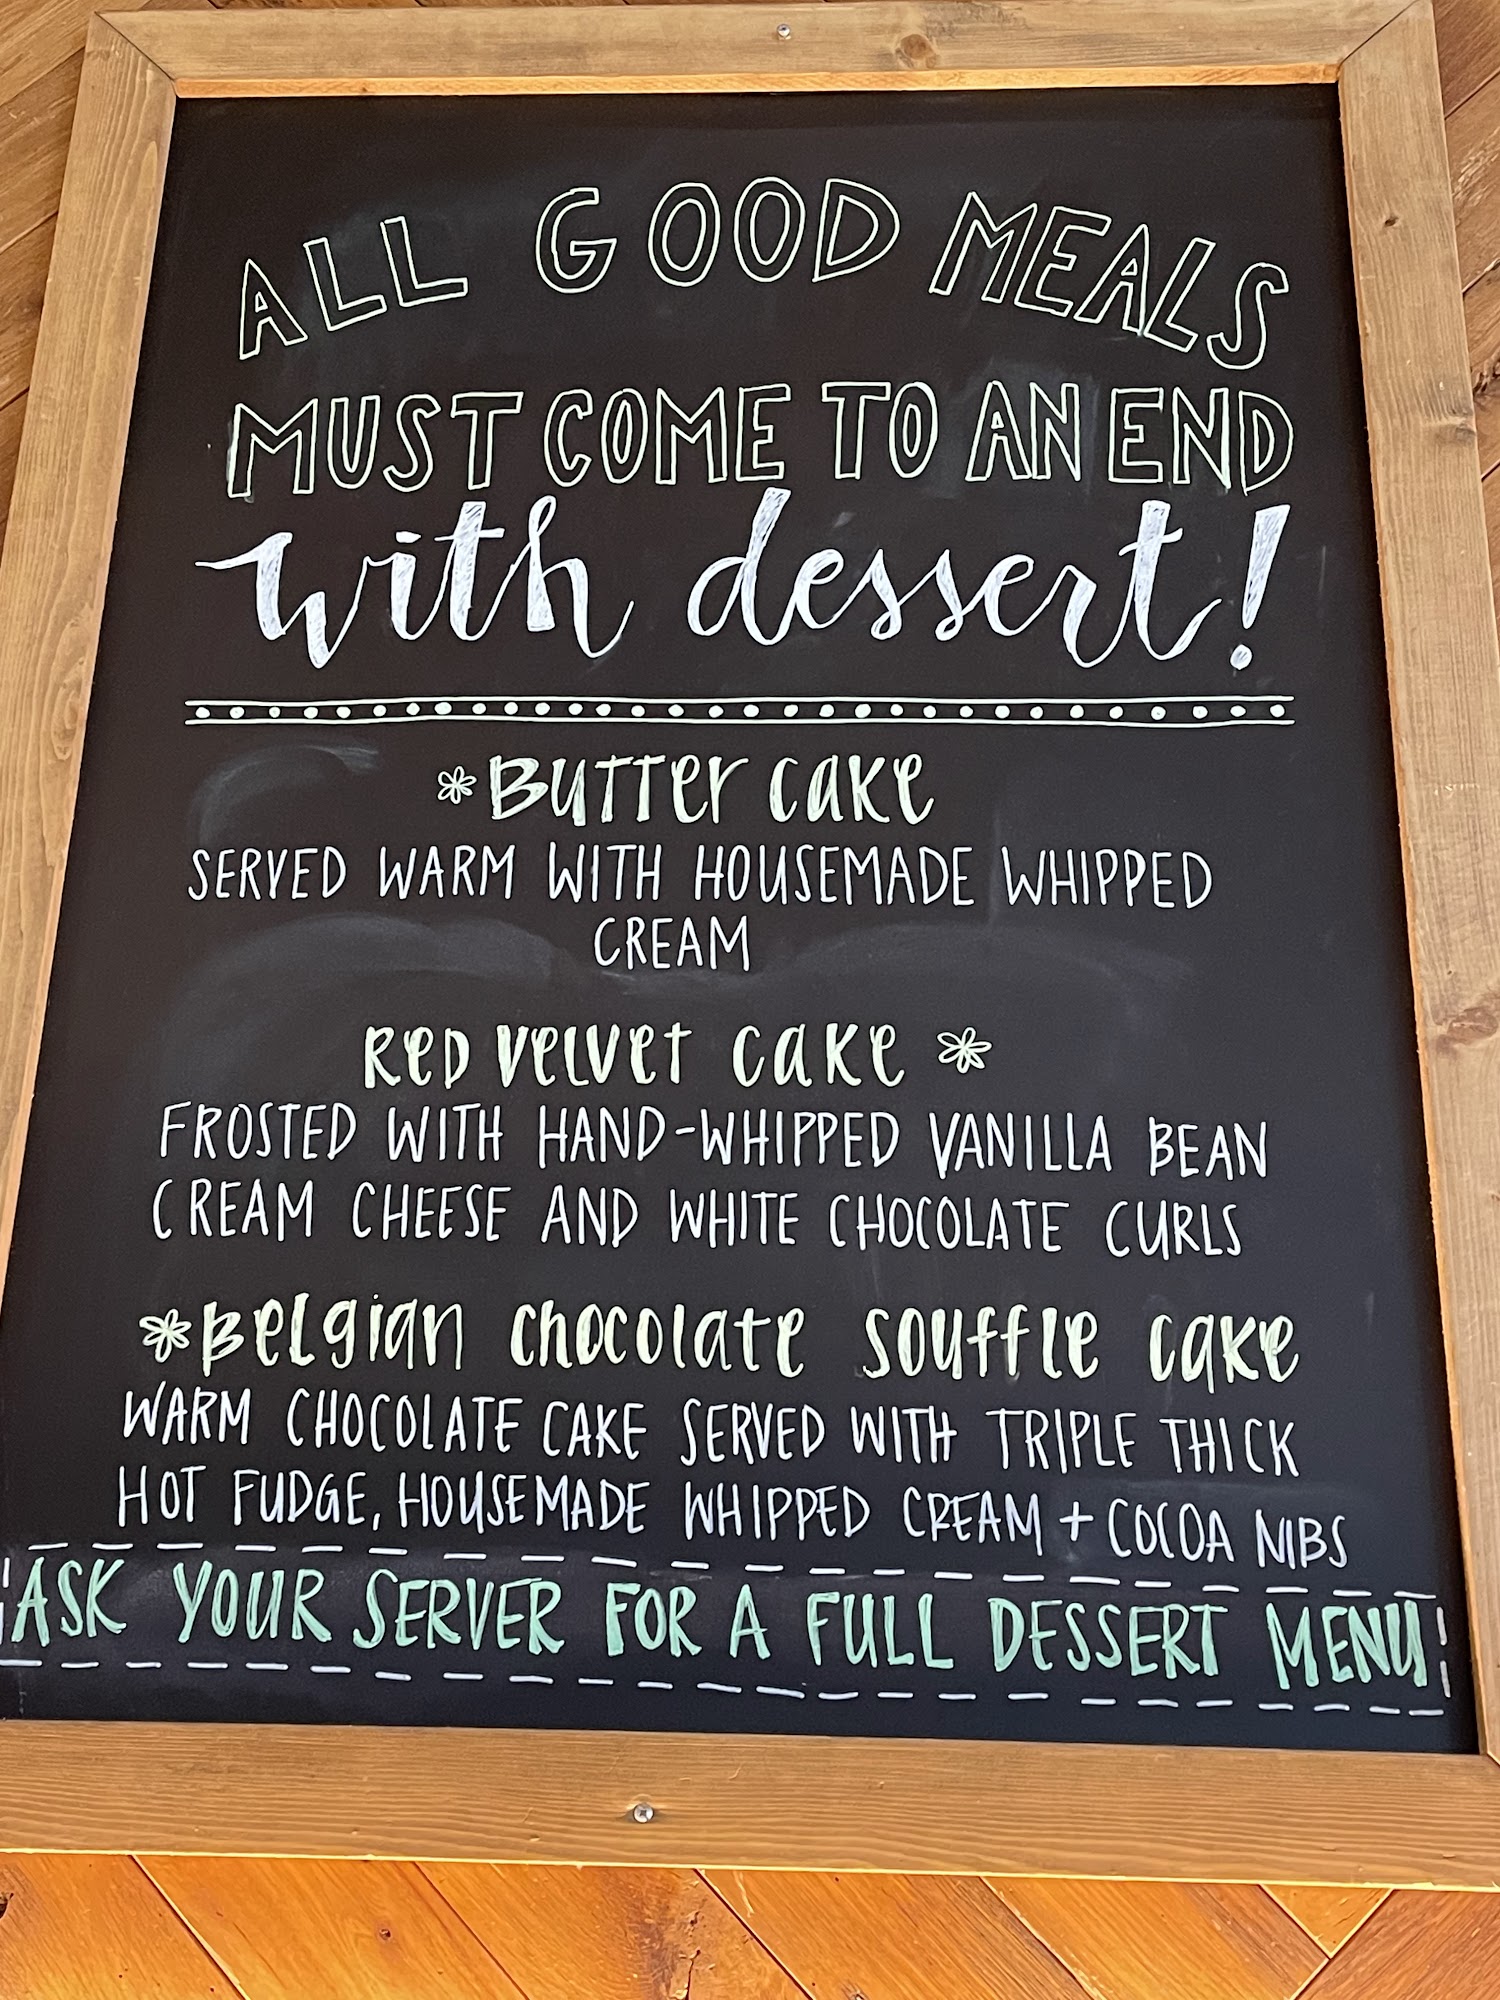 ALL GOOD MEALS
MUST COME TO AN END
with dessert!
*BUTTER CAKE
SERVED WARM WITH HOUSEMADE WHIPPED
CREAM
RED VELVET CAKE *
FROSTED WITH HAND-WHIPPED VANILLA BEAN
CREAM CHEESE AND WHITE CHOCOLATE CURLS
*BELgian CHOCOLATE SOUFFLE CAKE
WARM CHOCOLATE CAKE SERVED WITH TRIPLE THICK
HOT FUDGE, HOUSEMADE WHIPPED CREAM + COCOA NIBS
ASK YOUR SERVER FOR A FULL DESSERT MENU